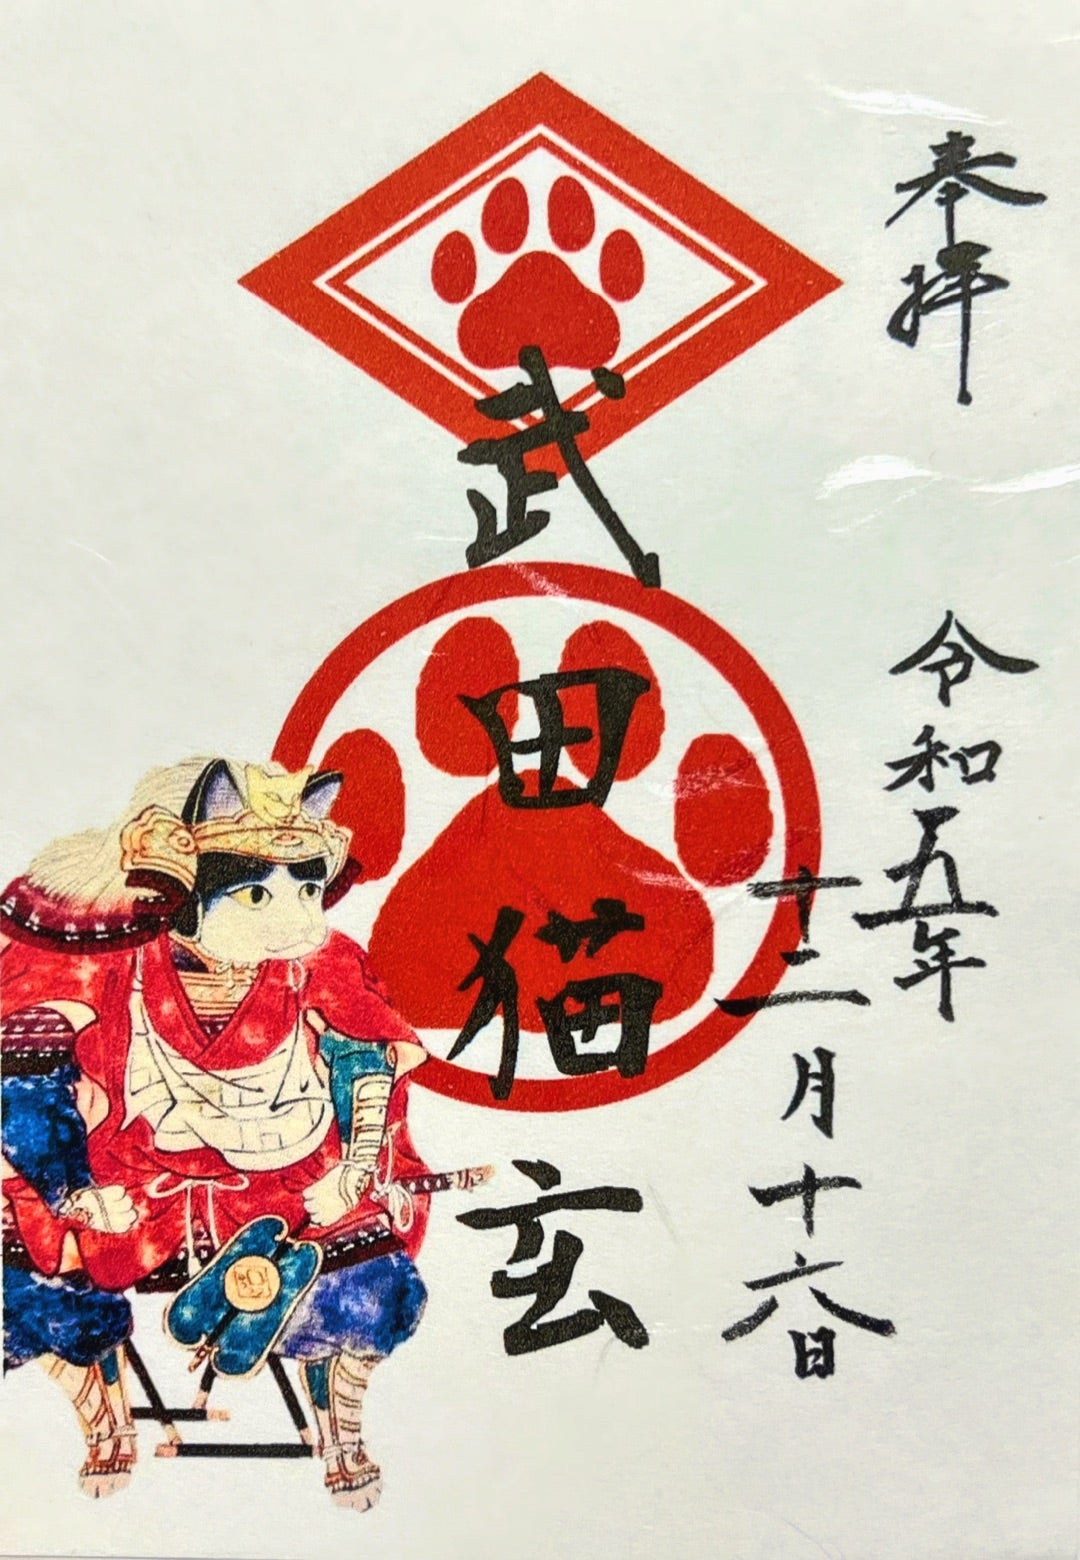 奉拝
令和五年
十二月十六日
武田猫玄